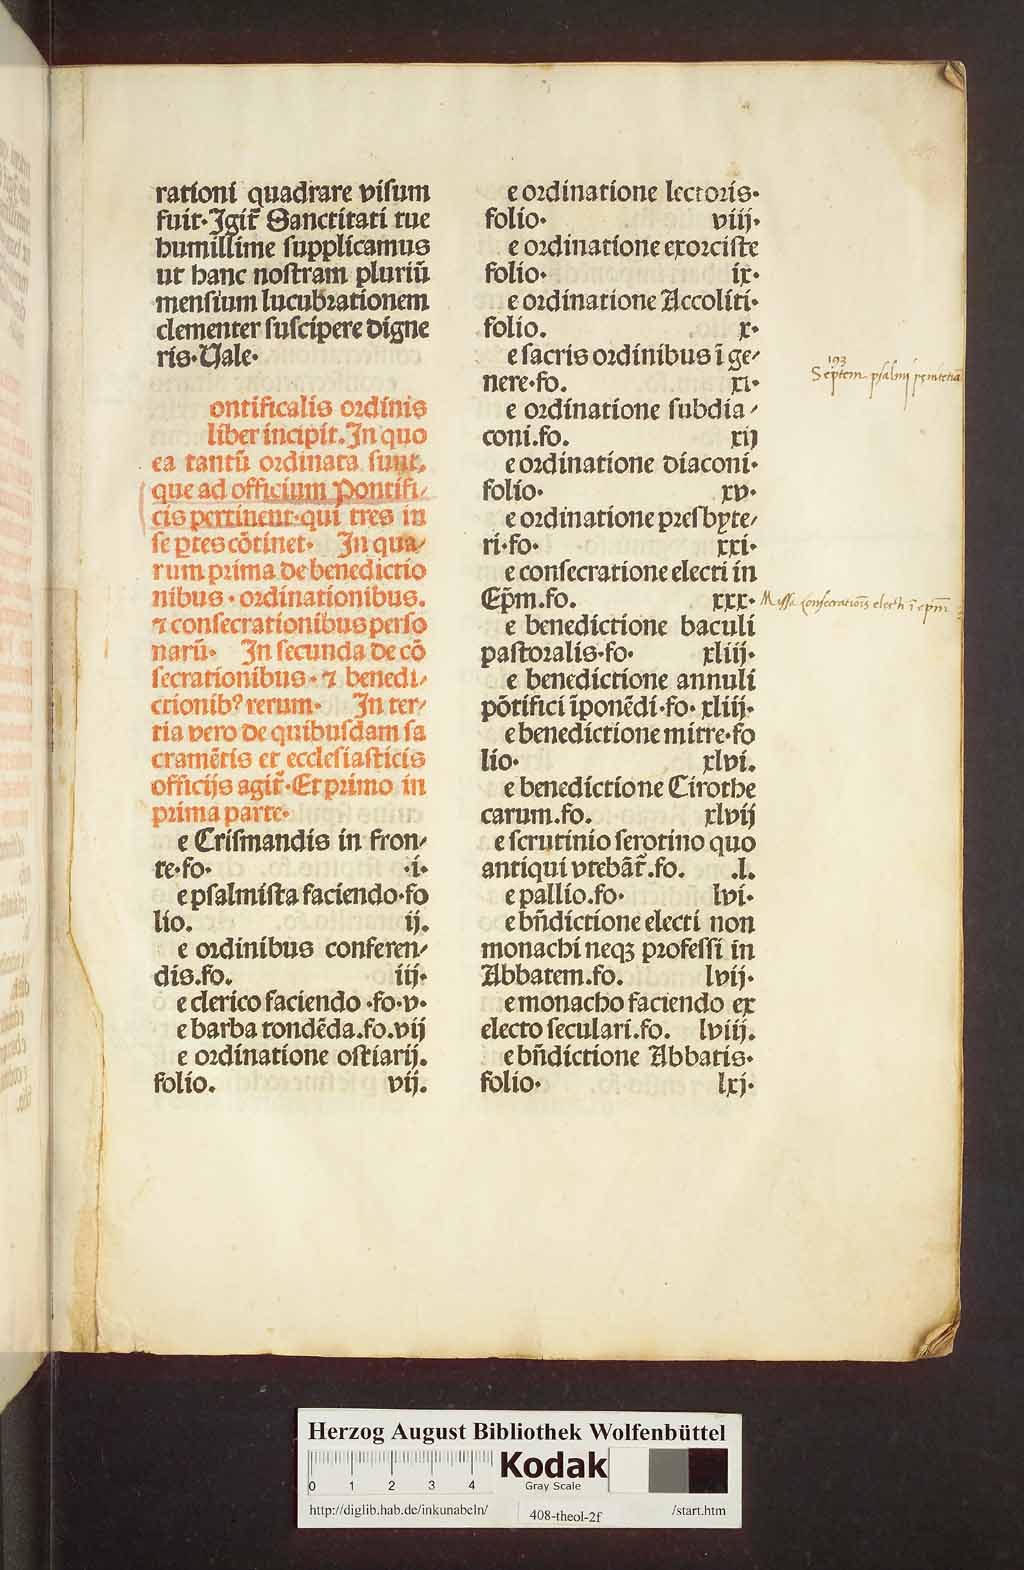 rationi quadrare visum
fuit. Igit̃ Sanctitati tue
humillime supplicamus
ut hanc nostram pluriũ
mensium lucubrationem
clementer suscipere digne
ris. Vale.
ontificalis ordinis
liber incipit. In quo
ea tantũ ordinata sunt,
que ad officium Pontifi/
cis pertinent. qui tres in
se ꝑtes cõtinet. In qua/
rum prima de benedictio
nibus. ordinationibus.
⁊ consecrationibus perso
narũ. In secunda de cõ
secrationibus. ⁊ benedi/
ctionibꝰ rerum. In ter/
tia vero de quibusdam sa
cramẽtis et ecclesiasticis
officijs agit̃. Et primo in
prima parte.
e Crismandis in fron/
te. fo. .i.
e psalmista faciendo. fo
lio. ij.
e ordinibus conferen/
dis. fo. iij.
e clerico faciendo .fo. v.
e barba tondẽda. fo. vij
e ordinatione ostiarij.
folio. vij.
e ordinatione lectoris.
folio. viij.
e ordinatione exorciste
folio. ix.
e ordinatione Accoliti.
folio. x.
e sacris ordinibus ĩ ge/
nere. fo. xi.
e ordinatione subdia/
coni. fo. xij
e ordinatione diaconi.
folio. xv.
e ordinatione presbyte/
ri. fo. xxi.
e consecratione electi in
Ep̃m. fo. xxx.
e benedictione baculi
pastoralis. fo. xliij.
e benedictione annuli
põtifici ĩponẽdi. fo. xliij.
e benedictione mitre. fo
lio. xlvi.
e benedictione Cirothe
carum. fo. xlvij
e scrutinio serotino quo
antiqui vtebãt̃. fo. .l.
e pallio. fo. lvi.
e bñdictione electi non
monachi neqꝫ professi in
Abbatem. fo. lvij.
e monacho faciendo ex
electo seculari. fo. lviij.
e bñdictione Abbatis.
folio. lxj.
193
Septem psalmi penitetia
Missa consecrationis electi ĩ ep̃m
Herzog August Bibliothek Wolfenbüttel
0 1 2 3 4
Kodak
Gray Scale
http://diglib.hab.de/inkunabeln/ 408-theol-2f /start.htm